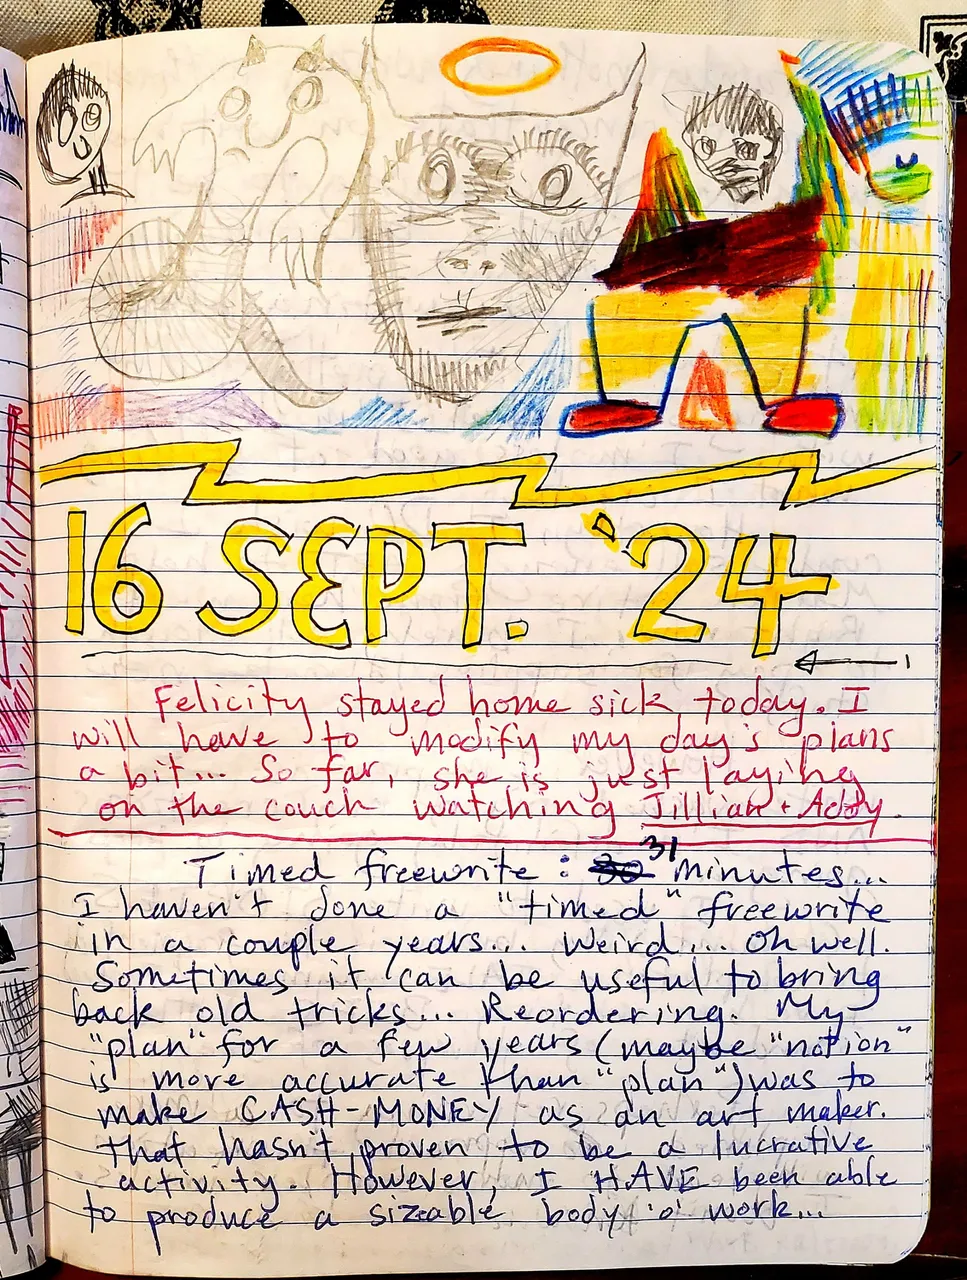 16 SEPT. '24
Felicity stayed home sick today. I
will have to modify my day's plans
a bit... So far, she is just laying
on the couch watching Jillian + Addy.
Timed freewrite: 30 31 minutes...
I haven't done a "timed" freewrite
in a couple years... Weird... Oh well.
Sometimes it can be useful to bring
back old tricks... Reordering. My
"plan" for a few years (maybe "notion"
is more accurate than "plan") was to
make CASH-MONEY as an art maker.
that hasn't proven to be a lucrative
activity. However, I HAVE been able
to produce a sizeable body 'o' work...